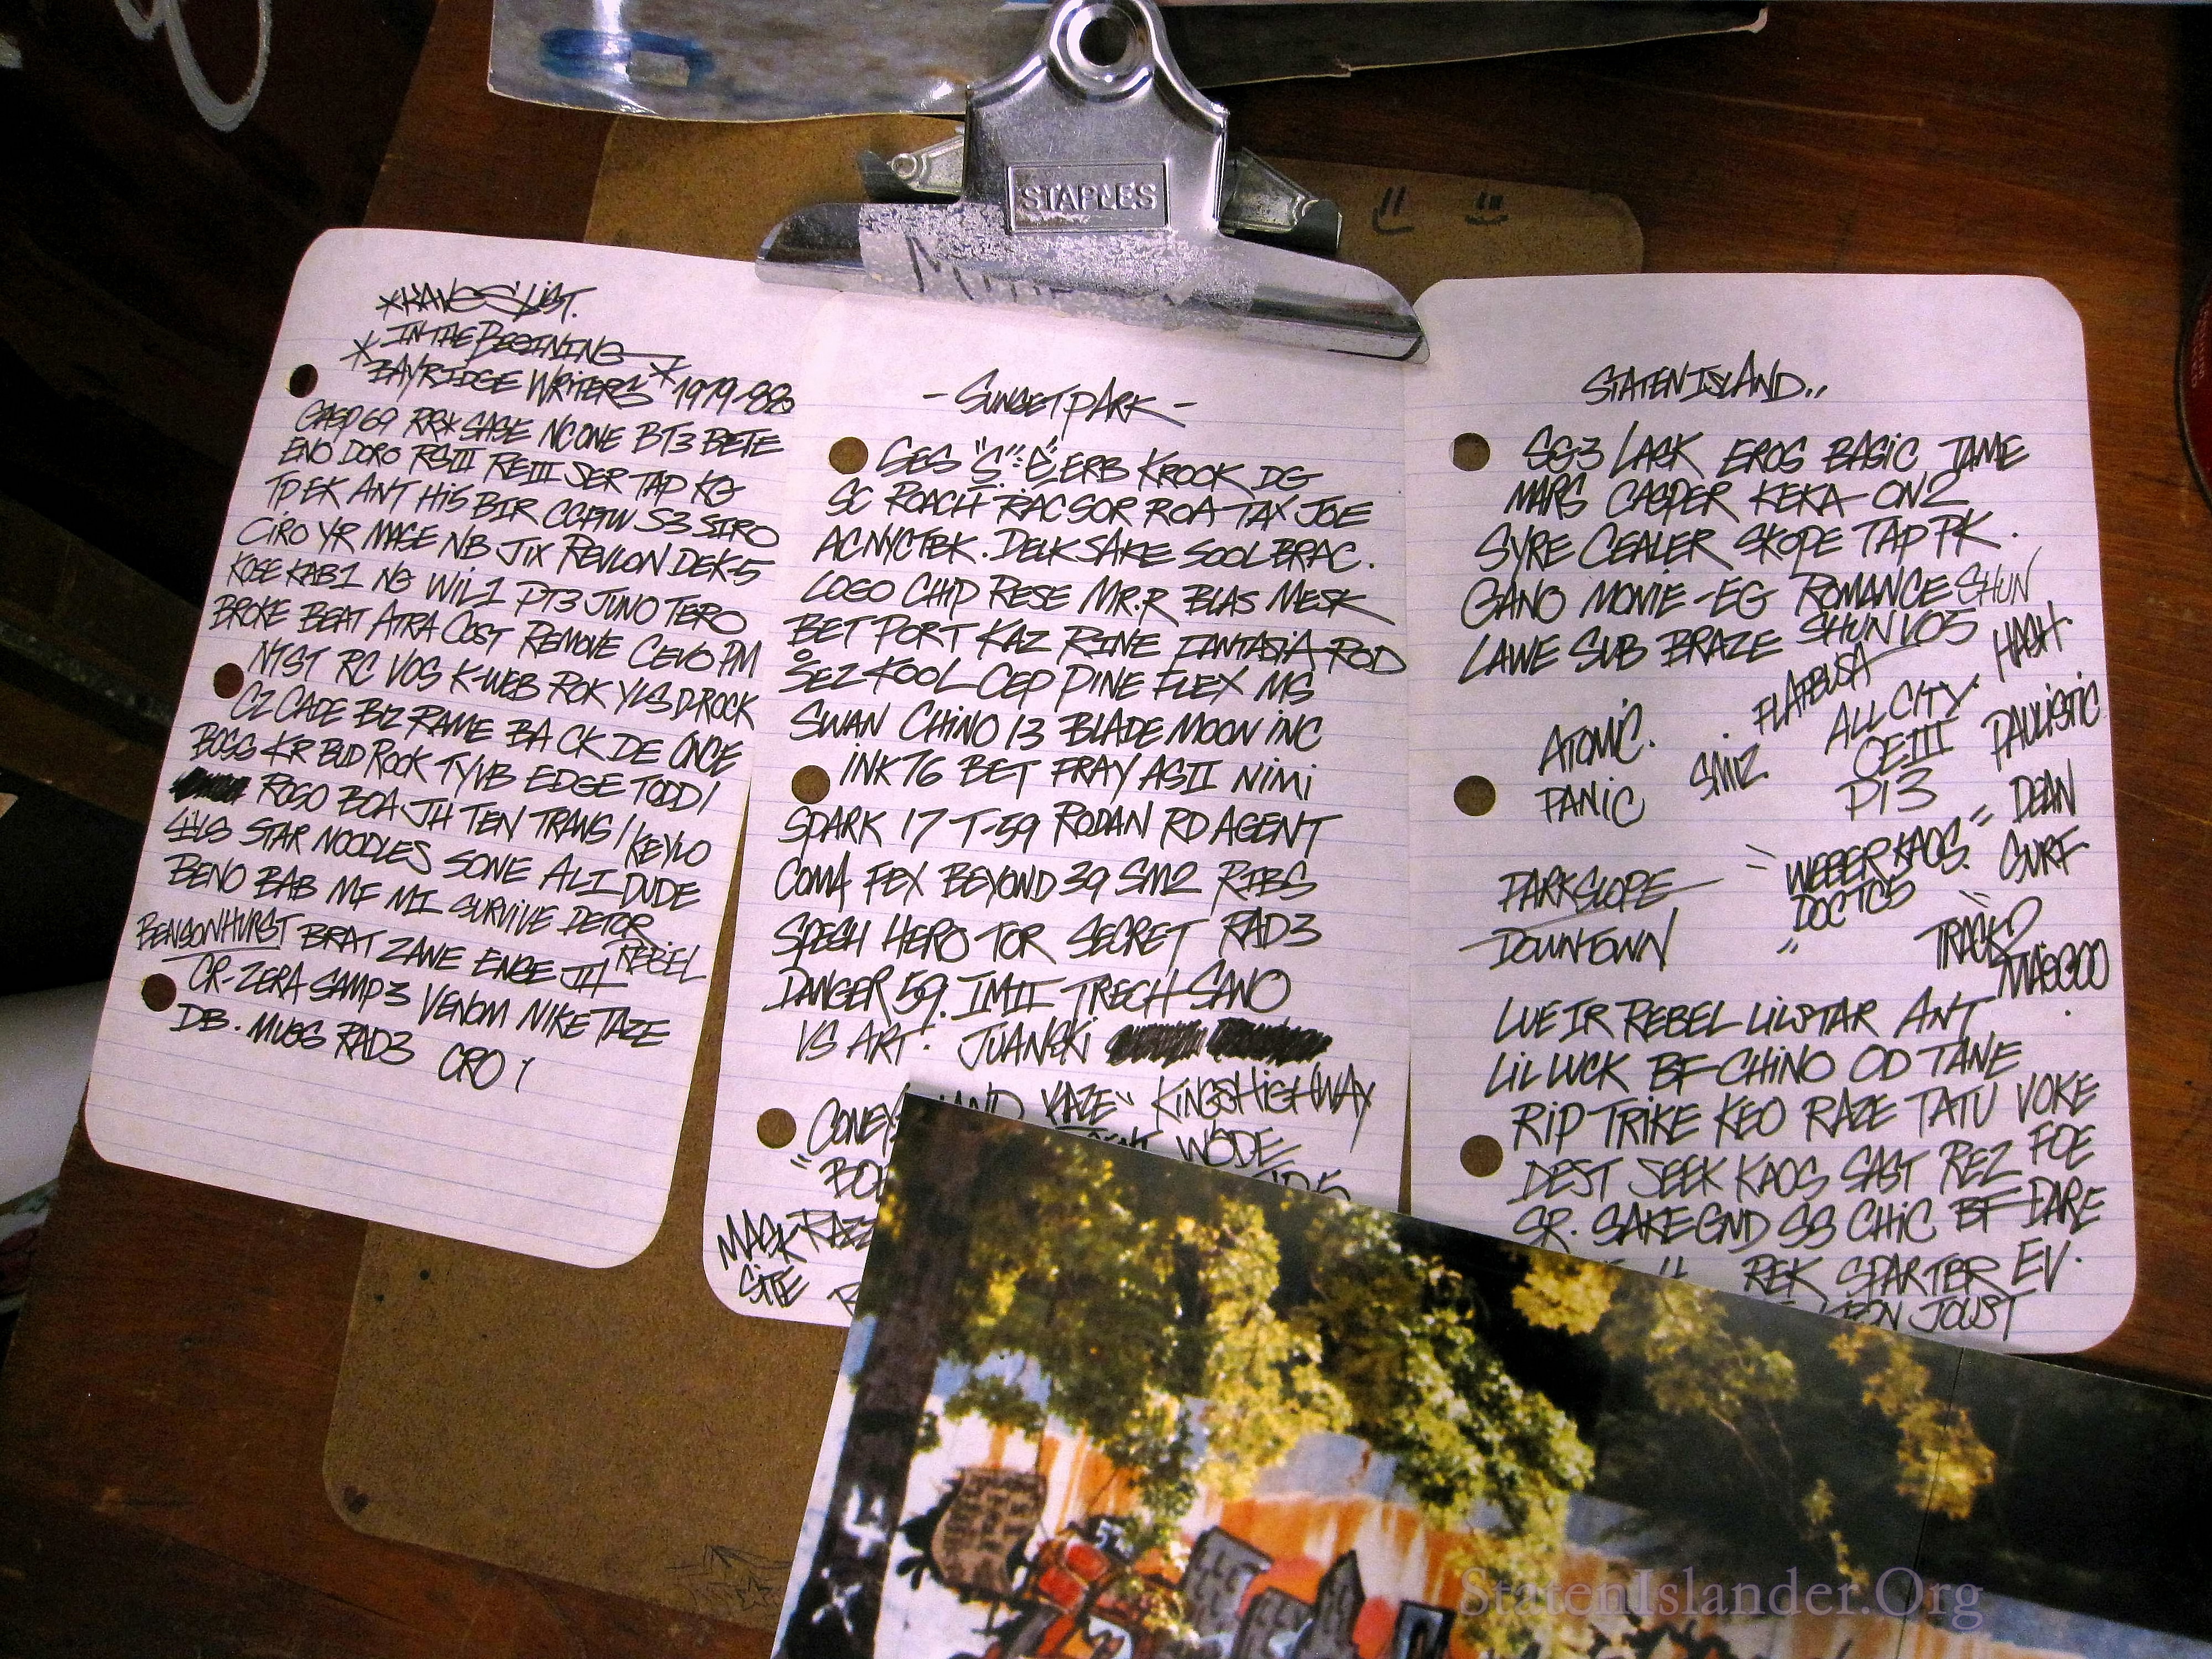 STAPLES
*KAVES' LIST.
*IN THE BEGINING
BAYRIDGE WRITERS * 1979-88
GASP69 RR* SASE NC ONE BT3 BETE
ENO DORO RSIII REIII SER TAP KG
TP EK ANT HIS BIR CCFTW S3 SIRO
CIRO YR MASE NB JIX REVLON DEK-5
KOSE KAB1 NG WIL1 PT3 JUNO TERO
BROKE BEAT ATRA COST REMOVE CEVO PM
NTST RC VOS K-WEB ROK YLS D-ROCK
CZ CADE BIZ RAME BA CK DE ONCE
BOSS KR BUD ROCK TYVB EDGE TODD1
ROGO BOA JH TEN TRANS1 KEYLO
STAR NOODLES SONE ALI DUDE
BENO BAB MF MI SURVIVE DETOR
BENSONHURST BRAT ZANE ENGE JH REBEL
CR-ZERA SAMP3 VENOM NIKE TAZE
DB. MUGG RAD3 CRO 1
- SUNSET PARK -
SES "S.E" ERB KROOK DG
SC ROACH RAC SOR ROA TAX JOE
AC NYCTBK. DELK SAKE SOOL BRAC.
LOGO CHIP RESE MR.R BLAS MESK
BET PORT KAZ RINE FANTASIA ROD
SEZ KOOL CEP PINE FLEX MS
SWAN CHINO 13 BLADE MOON INC
INK76 BET FRAY ASII NIMI
SPARK 17 T-59 RODAN RD AGENT
COMA FEX BEYOND 39 SM2 RIBS
SPESH HERO TOR SECRET RAD3
DANGER 59. IMII TRECH SANO
VS ART. JUANSKI
KAZE" KINGSHIGHWAY
WODE
MASK RAZZ
SITE
STATEN ISLAND..
SG3 LASK EROS BASIC JAME
MARS CASPER KEKA ON2
SYRE CEALER SKOPE TAP PK.
GANO MOVIE-EG ROMANCE SHUN
LAWE SUB BRAZE SHUN VO5 HASH.
FLATBUSH
ATOMIC. SMIZ ALL CITY. PAULISTIC
PANIC OEIII
PI3 DEAN
PARKSLOPE "WEBER KAOS." SURF
DOWNTOWN " DOC TC5 "
TRACK2
MAGOO
LUE IR REBEL LILSTAR ANT
LIL LUCK BF-CHINO OD TANE
RIP TRIKE KEO RAZE TATU VOKE
DEST SEEK KAOS SAST REZ FOE
SR. SAKE GND SS CHIC BF DARE
REK SPARTER EV.
JOUST
StatenIslander.Org